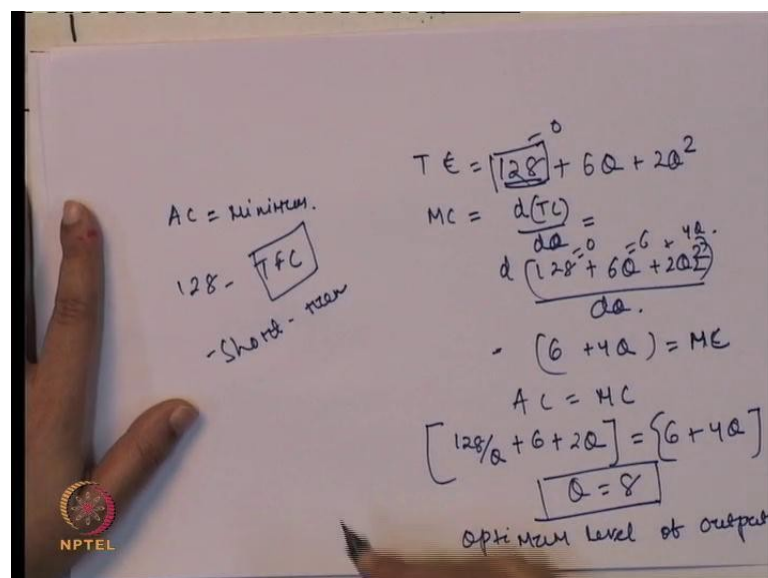 AC = Minimum.
128 - TFC
- Short - run
= 0
TC = 128 + 6Q + 2Q²
MC = d(TC)/dQ =
= 0 = 6 + 4Q.
d (128 + 6Q + 2Q²)
dQ.
- (6 + 4Q) = MC
AC = MC
[128/Q + 6 + 2Q] = {6 + 4Q]
Q = 8
Optimum level of output
NPTEL